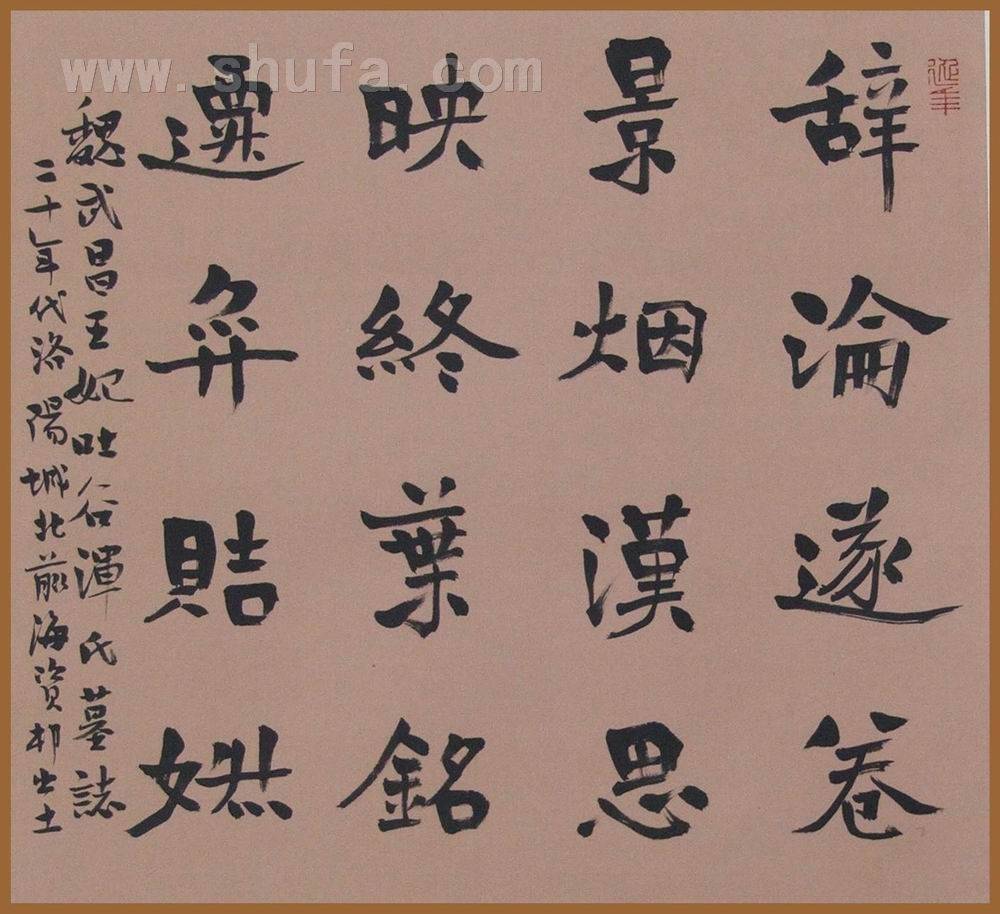 辞淪遂卷
景烟漢思
映終葉銘
遷弈贴
魏武昌王妃吐谷渾氏墓誌
二十年代洛陽城北前海資村出土
www.shufa.com